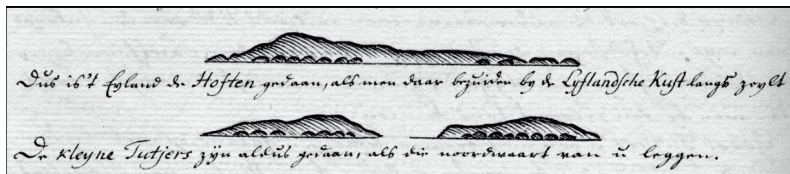 Dus is't Eyland de Hoften gedaan, als men daar bezuiden by de Lyflandsche Kust langs zeylt
De kleyne Tutjers zÿn aldus gedaan, als die noordwaart van u leggen.